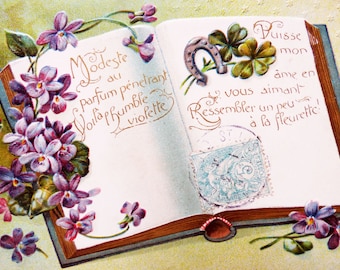 Modeste
au
parfum pénétrant
Voilà l'humble
violette
Puisse
mon
âme en
vous aimant
Ressembler un peu
à la fleurette!